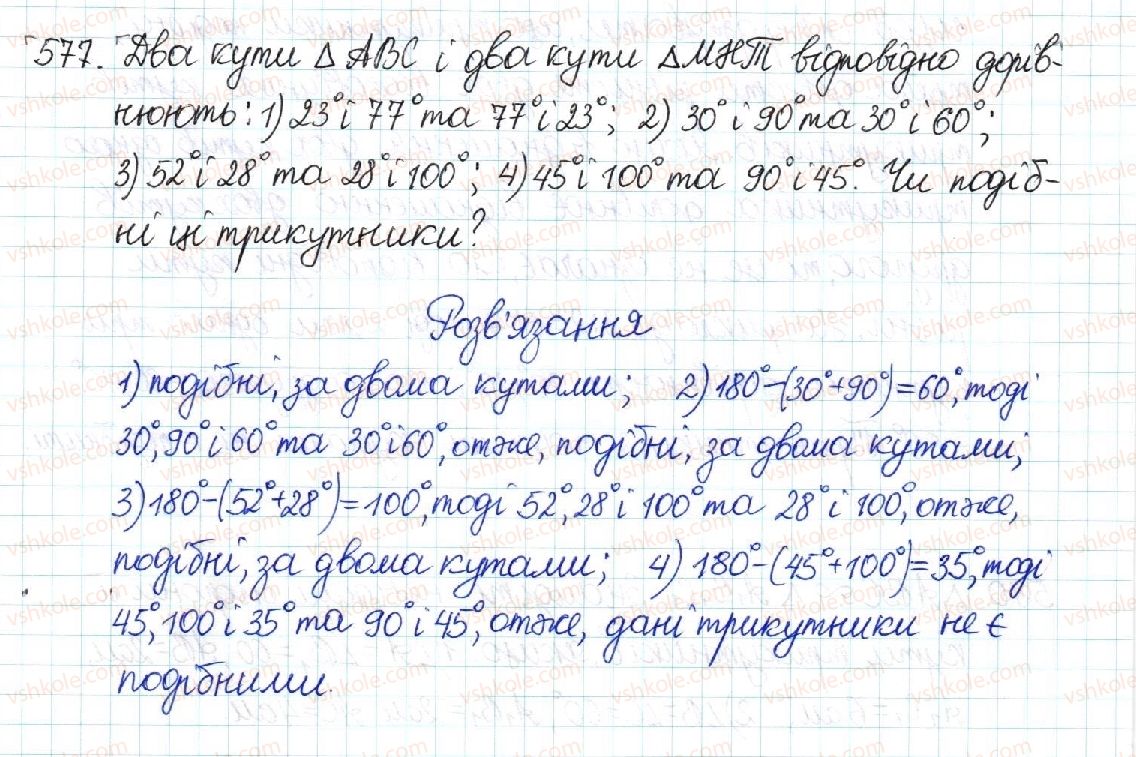 577. Два кути △ABC і два кути △МНТ відповідно дорів-
нюють: 1) 23° і 77° та 77° і 23°; 2) 30° і 90° та 30° і 60°;
3) 52° і 28° та 28° і 100°; 4) 45° і 100° та 90° і 45°. Чи подіб-
ні ці трикутники?
Розв'язання
1) подібні, за двома кутами; 2) 180°-(30°+90°)=60°, тоді
30°, 90° і 60° та 30° і 60°, отже, подібні, за двома кутами;
3) 180°-(52°+28°)=100°, тоді 52°, 28° і 100° та 28° і 100°, отже,
подібні, за двома кутами; 4) 180°-(45°+100°)=35°, тоді
45°, 100° і 35° та 90° і 45°, отже, дані трикутники не є
подібними.